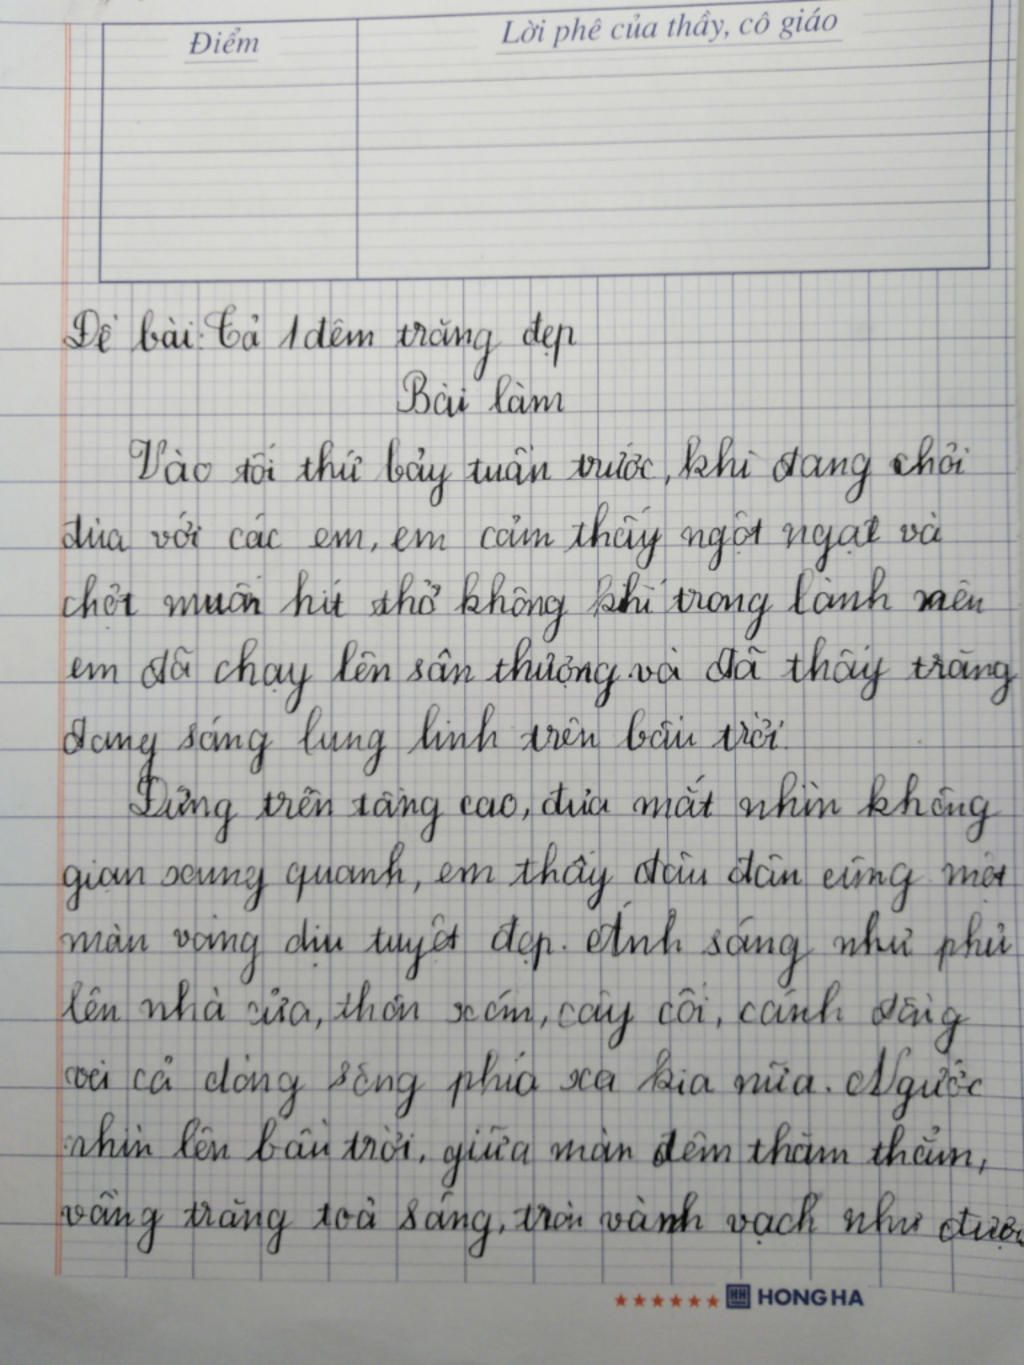 Điểm
Lời phê của thầy, cô giáo
Đề bài: Tả 1 đêm trăng đẹp
Bài làm
Vào tối thứ bảy tuần trước, khi đang chơi
đùa với các em, em cảm thấy ngột ngạt và
chợt muốn hít thở không khí trong lành nên
em đã chạy lên sân thượng và đã thấy trăng
đang sáng lung linh trên bầu trời.
Đứng trên tầng cao, đưa mắt nhìn không
gian xung quanh, em thấy đâu đân cũng một
màn vàng dịu tuyệt đẹp. Ánh sáng như phủ
lên nhà cửa, thôn xóm, cây cối, cánh đồng
và cả dòng sông phía xa kia nữa. Ngước
nhìn lên bầu trời, giữa màn đêm thăm thẳm,
vầng trăng toả sáng, tròn vành vạch như được
HH HONG HA